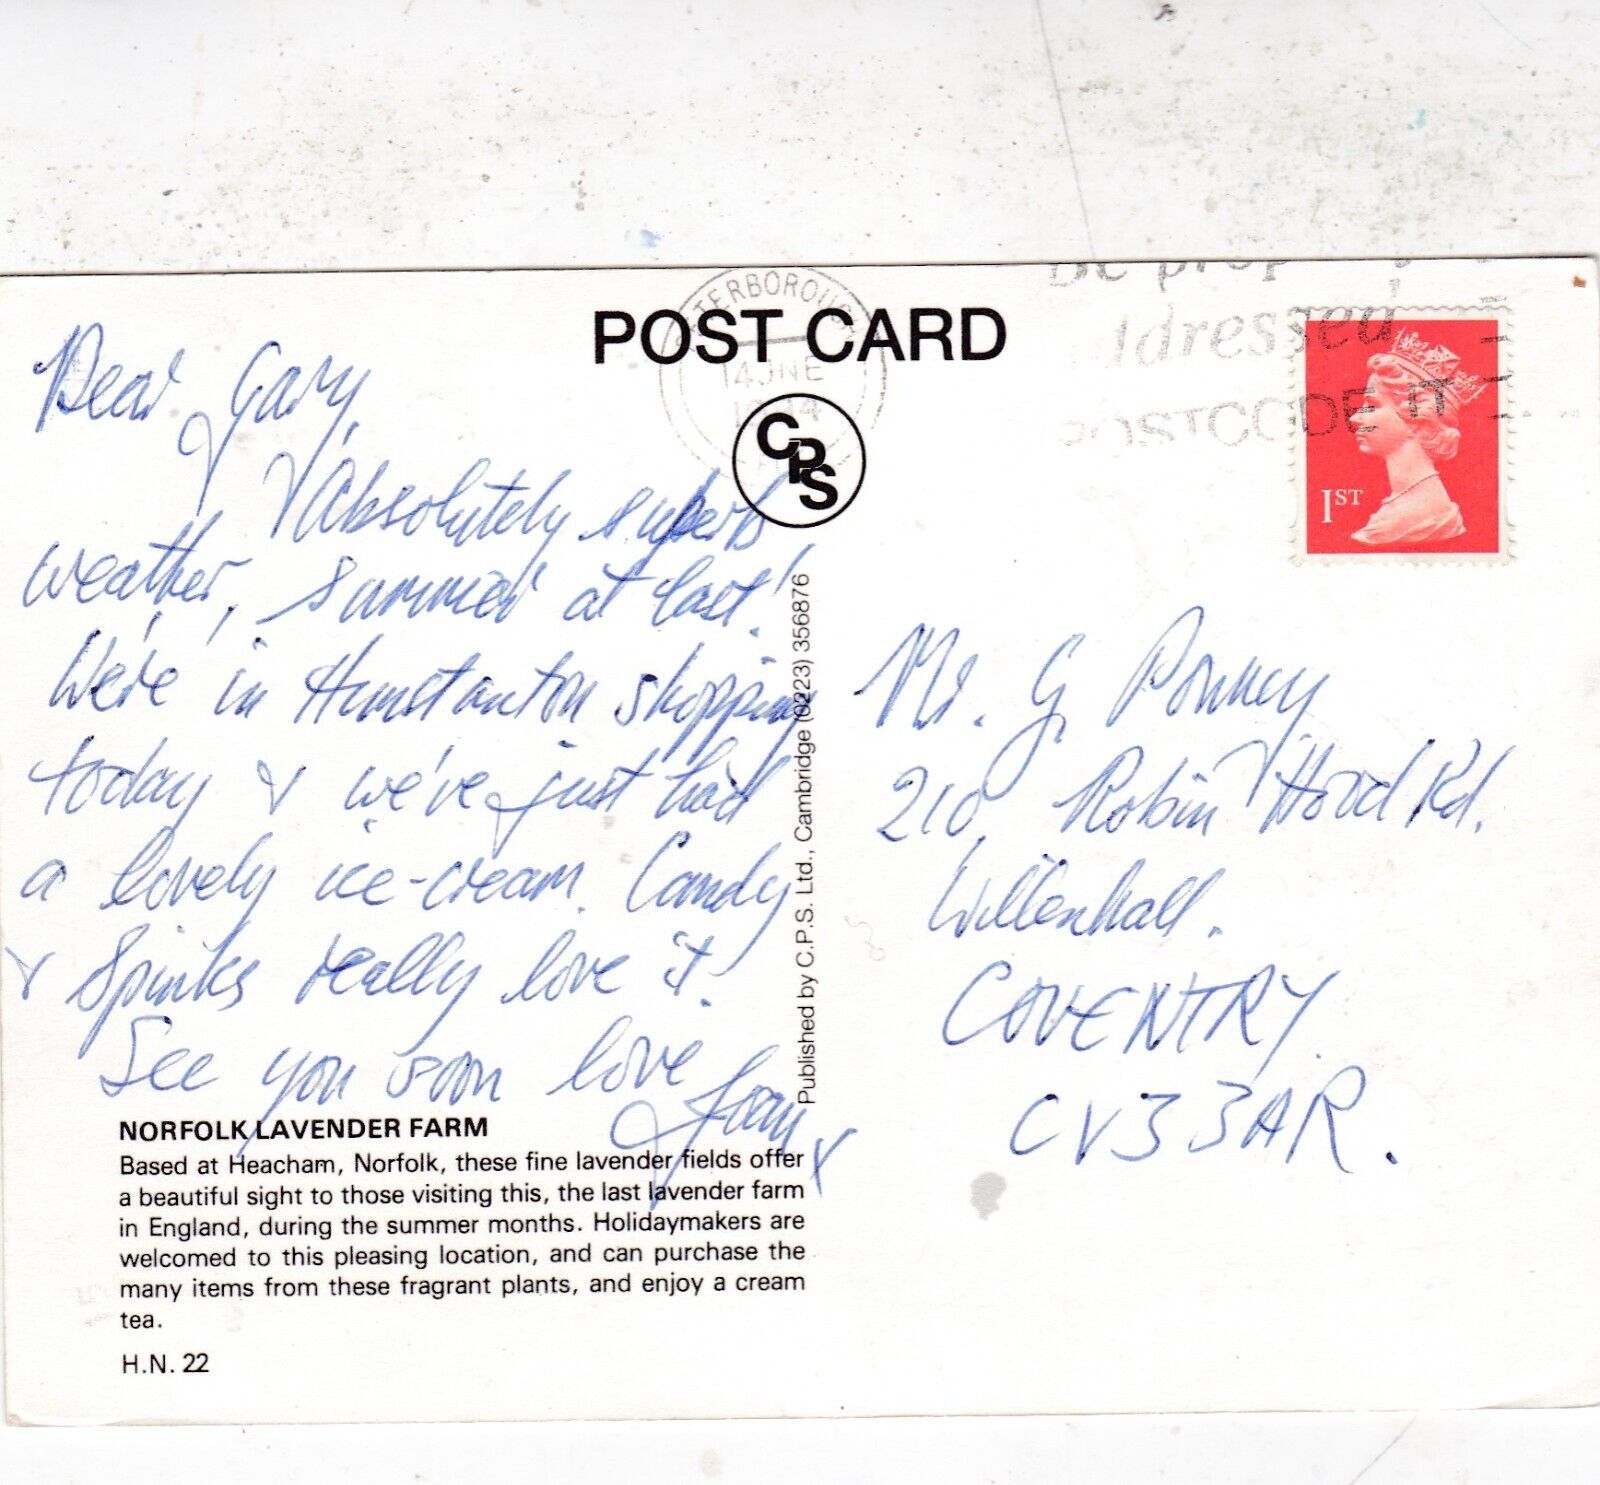 POST CARD
PETERBOROUGH
14 JNE
1994
Be prop
ddressed
POSTCODE IT
1ST
CPS
Dear Gary,
Absolutely superb
weather, summer at last!
We're in Hunstanton shopping
today & we've just had
a lovely ice-cream. Candy
& Spinks really love it!
See you soon love
Joan x
Mr. G
210, Robin Hood Rd.
Willenhall.
COVENTRY.
CV3 3AR.
Published by C.P.S. Ltd., Cambridge (0223) 356876
NORFOLK LAVENDER FARM
Based at Heacham, Norfolk, these fine lavender fields offer
a beautiful sight to those visiting this, the last lavender farm
in England, during the summer months. Holidaymakers are
welcomed to this pleasing location, and can purchase the
many items from these fragrant plants, and enjoy a cream
tea.
H.N. 22